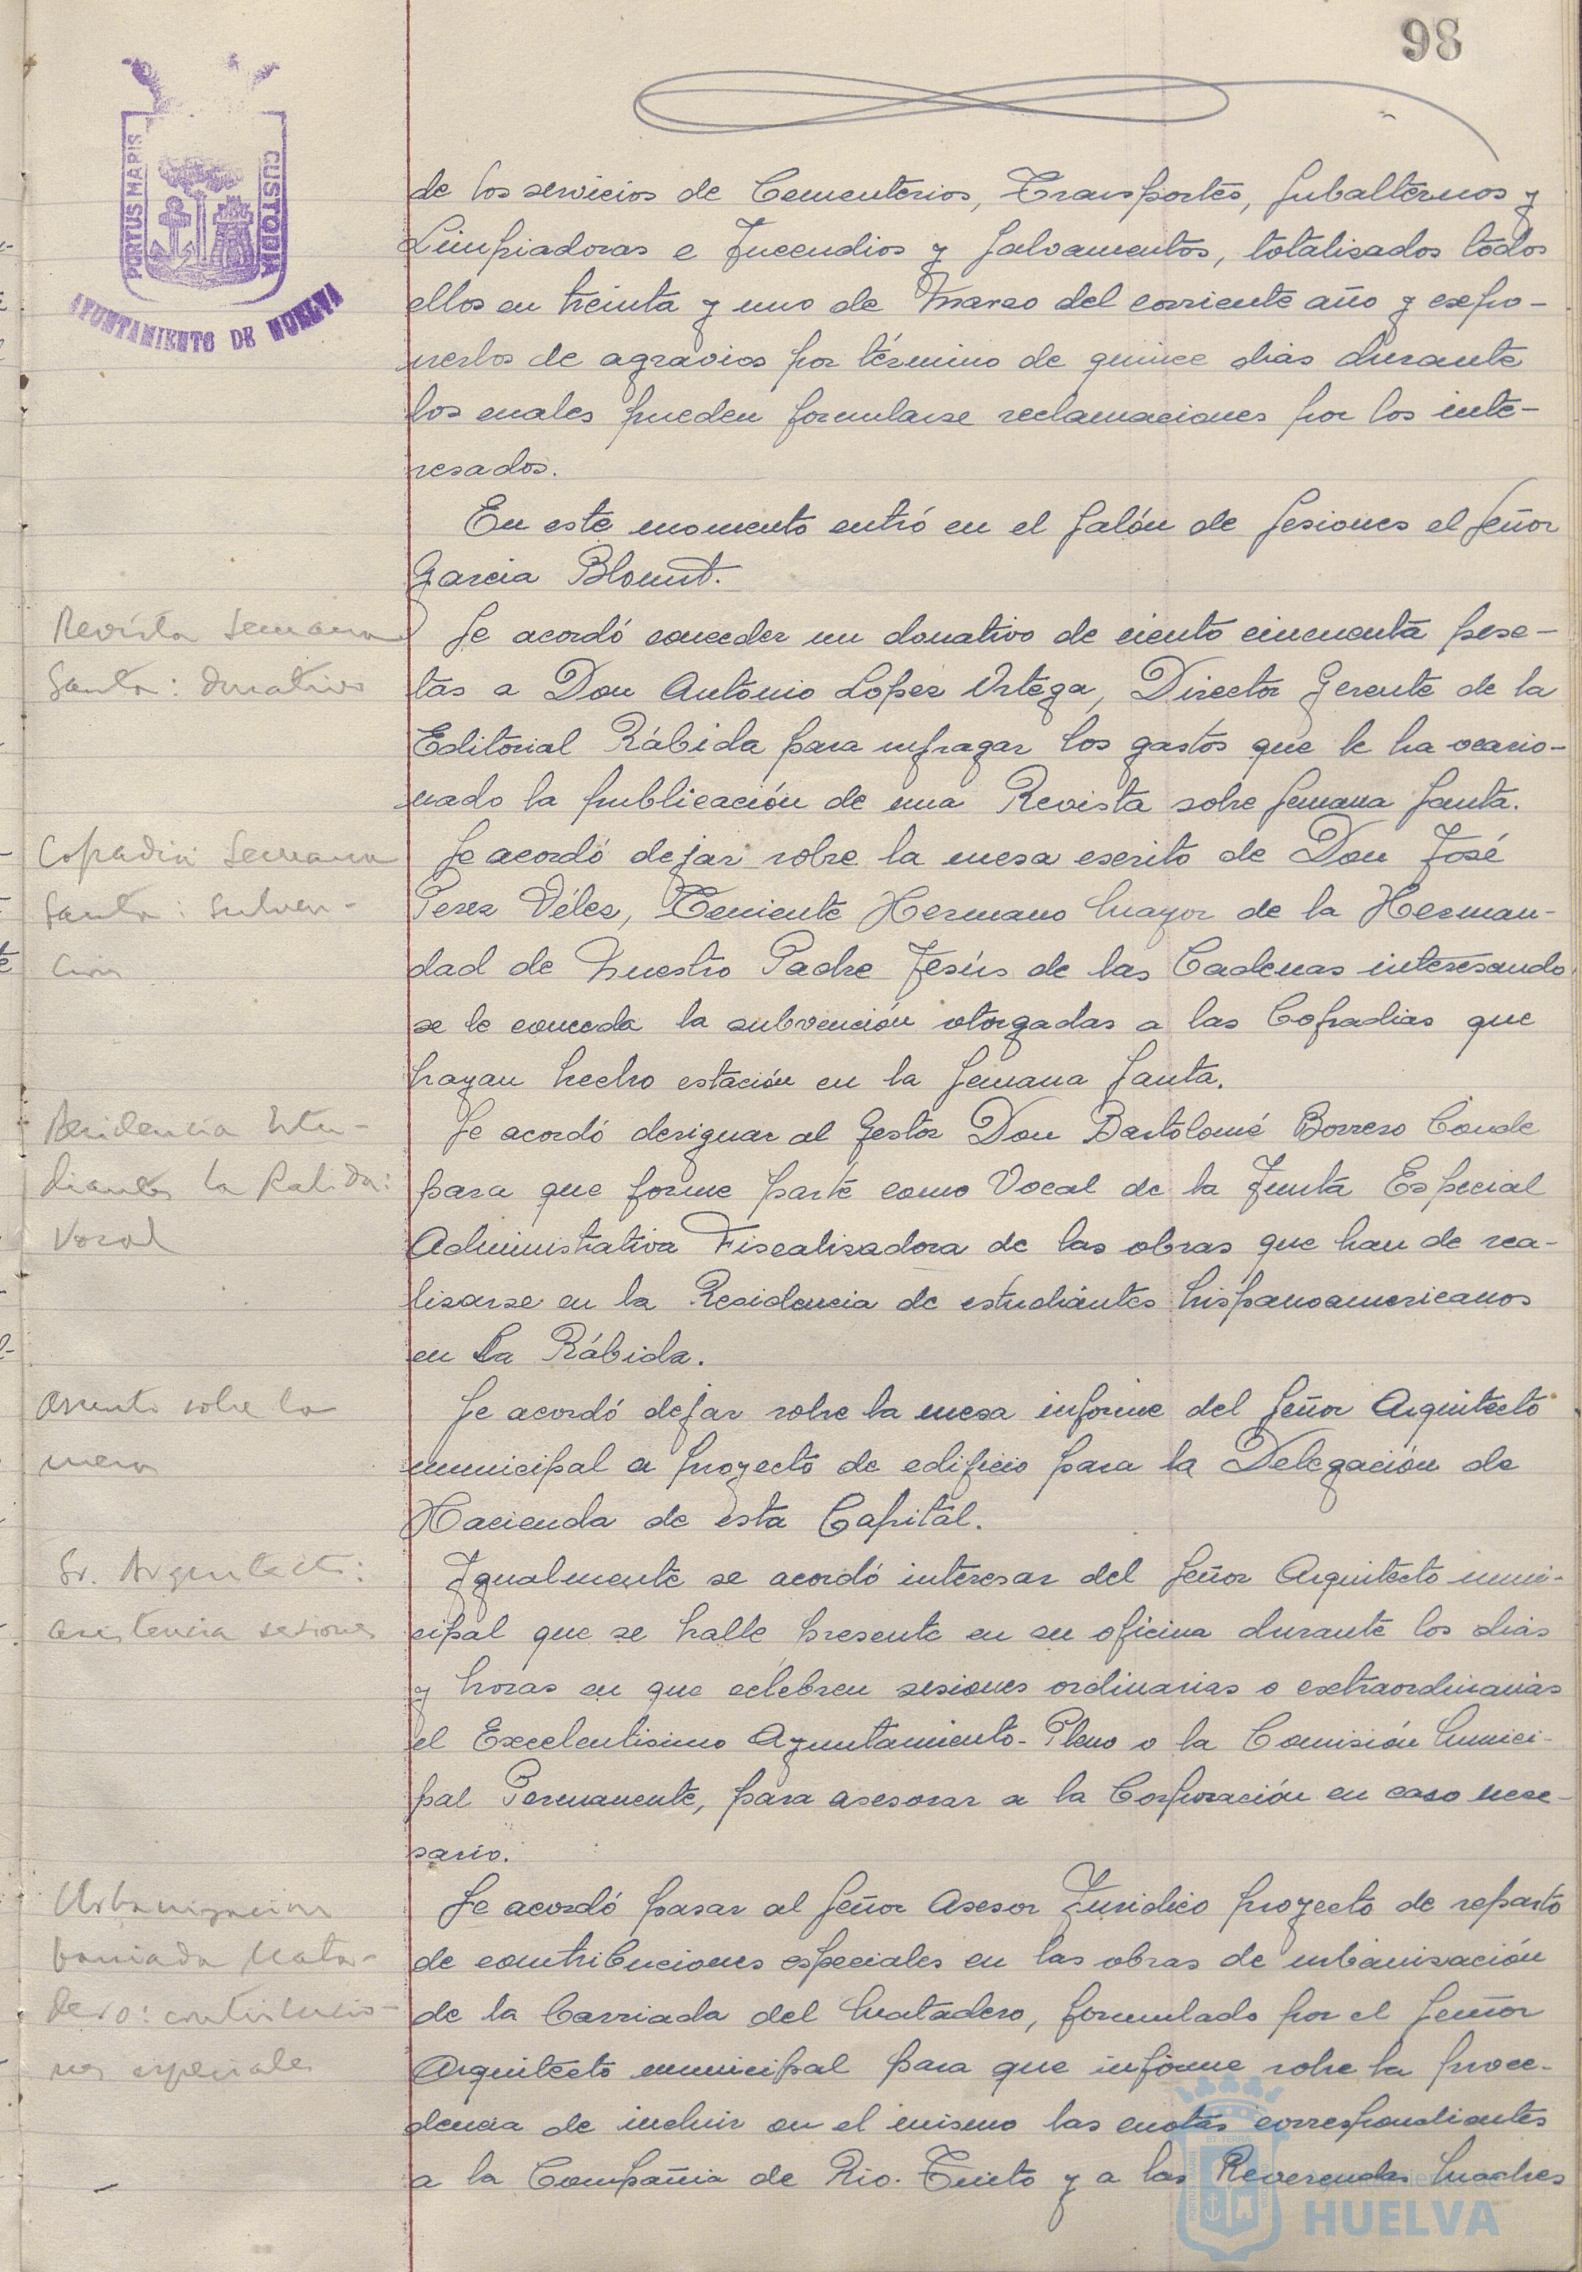 98
PORTUS MARIS
CUSTODIA
AYUNTAMIENTO DE HUELVA
de los servicios de Cementerios, Transportes, Subalternos y
Limpiadoras e Incendios y Salvamentos, totalizados todos
ellos en treinta y uno de Marzo del corriente año y expo-
nerlos de agravios por término de quince dias durante
los cuales pueden formularse reclamaciones por los inte-
resados.
En este momento entró en el Salón de Sesiones el Señor
Garcia Blount.
Revista Semana
Santa: donativo
Se acordó conceder un donativo de ciento cincuenta pese-
tas a Don Antonio Lopez Ortega, Director Gerente de la
Editorial Rábida para sufragar los gastos que le ha ocasio-
nado la publicación de una Revista sobre Semana Santa.
Cofradia Semana
Santa: subven-
ción
Se acordó dejar sobre la mesa escrito de Don José
Perez Vélez, Teniente Hermano Mayor de la Herman-
dad de Nuestro Padre Jesús de las Cadenas interesando
se le conceda la subvención otorgadas a las Cofradias que
hayan hecho estación en la Semana Santa.
Residencia Estu-
diantes La Rabida:
Vocal
Se acordó designar al Gestor Don Bartolomé Borrero Conde
para que forme parte como Vocal de la Junta Especial
Administrativa Fiscalizadora de las obras que han de rea-
lizarse en la Residencia de estudiantes hispanoamericanos
en La Rábida.
Asunto sobre la
mesa
Se acordó dejar sobre la mesa informe del Señor Arquitecto
municipal a proyecto de edificio para la Delegación de
Hacienda de esta Capital.
Sr. Arquitecto:
asistencia sesiones
Igualmente se acordó interesar del Señor Arquitecto muni-
cipal que se halle presente en su oficina durante los dias
y horas en que celebren sesiones ordinarias o extraordinarias
el Excelentisimo Ayuntamiento-Pleno o la Comisión Munici-
pal Permanente, para asesorar a la Corporación en caso nece-
sario.
Urbanizacion
barriada Mata-
dero: contribucio-
nes especiales
Se acordó pasar al Señor Asesor Juridico proyecto de reparto
de contribuciones especiales en las obras de urbanización
de la barriada del Matadero, formulado por el Señor
Arquitecto municipal para que informe sobre la proce-
dencia de incluir en el mismo las cuotas correspondientes
a la Compañia de Rio-Tinto y a las Reverendas Madres
HUELVA